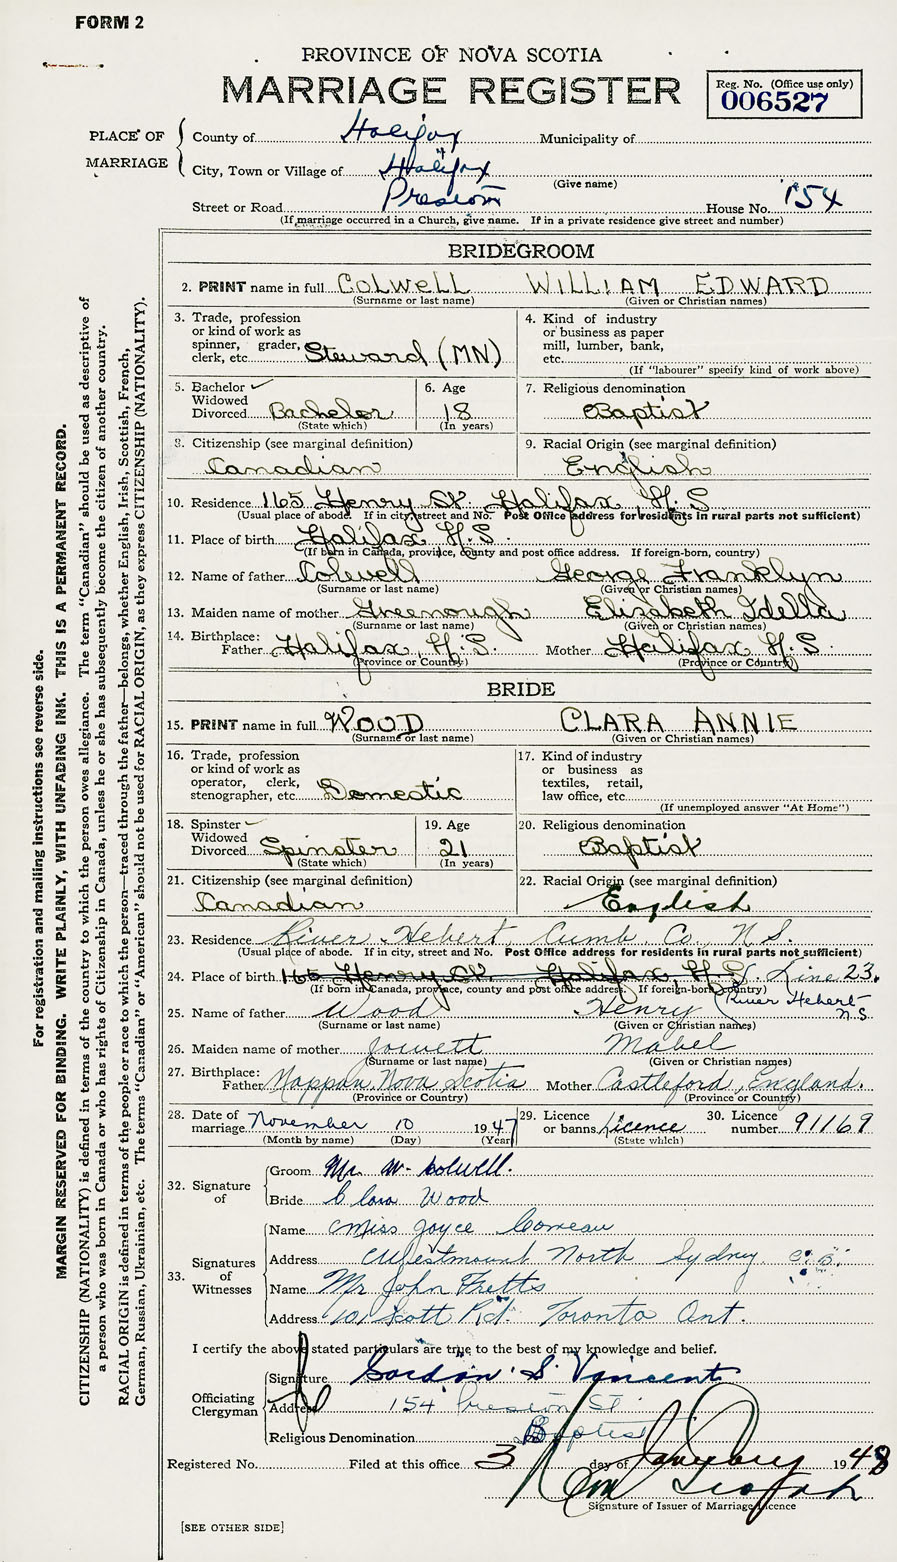 FORM 2
PROVINCE OF NOVA SCOTIA
MARRIAGE REGISTER
Reg. No. (Office use only)
006527
PLACE OF MARRIAGE
County of Halifax Municipality of
City, Town or Village of Halifax
(Give name)
Street or Road Preston House No. 154
(If marriage occurred in a Church, give name. If in a private residence give street and number)
BRIDEGROOM
2. PRINT name in full COLWELL WILLIAM EDWARD
(Surname or last name) (Given or Christian names)
3. Trade, profession or kind of work as spinner, grader, clerk, etc. Steward (MN)
4. Kind of industry or business as paper mill, lumber, bank, etc.
(If "labourer" specify kind of work above)
5. Bachelor ✓ Widowed Divorced Bachelor
(State which)
6. Age 18
(In years)
7. Religious denomination
Baptist
8. Citizenship (see marginal definition)
Canadian
9. Racial Origin (see marginal definition)
English
10. Residence 165 Henry St Halifax, N.S
(Usual place of abode. If in city, street and No. Post Office address for residents in rural parts not sufficient)
11. Place of birth Halifax N.S.
(If born in Canada, province, county and post office address. If foreign-born, country)
12. Name of father Colwell George Franklyn
(Surname or last name) (Given or Christian names)
13. Maiden name of mother Greenough Elizabeth Idella
(Surname or last name) (Given or Christian names)
14. Birthplace:
Father Halifax, N.S. Mother Halifax N.S.
(Province or Country) (Province or Country)
BRIDE
15. PRINT name in full WOOD CLARA ANNIE
(Surname or last name) (Given or Christian names)
16. Trade, profession or kind of work as operator, clerk, stenographer, etc. Domestic
17. Kind of industry or business as textiles, retail, law office, etc.
(If unemployed answer "At Home")
18. Spinster ✓ Widowed Divorced Spinster
(State which)
19. Age 21
(In years)
20. Religious denomination
Baptist
21. Citizenship (see marginal definition)
Canadian
22. Racial Origin (see marginal definition)
English
23. Residence River Hebert Cumb. Co., N.S.
(Usual place of abode. If in city, street and No. Post Office address for residents in rural parts not sufficient)
24. Place of birth 165 Henry St. Halifax, N.S. Line 23.
(If born in Canada, province, county and post office address. If foreign-born, country)
River Hebert N.S
25. Name of father Wood Henry
(Surname or last name) (Given or Christian names)
26. Maiden name of mother Jowett Mabel
(Surname or last name) (Given or Christian names)
27. Birthplace:
Father Nappan, Nova Scotia Mother Castleford, England.
(Province or Country) (Province or Country)
28. Date of marriage November 10 1947
(Month by name) (Day) (Year)
29. Licence or banns Licence
(State which)
30. Licence number 91169
32. Signature of
Groom Mr. W. Colwell.
Bride Clara Wood
33. Signatures of Witnesses
Name Miss Joyce Comeau
Address Westmount North Sydney C.B.
Name Mr John Fretts
Address 10, Scott Rd. Toronto Ont.
I certify the above stated particulars are true to the best of my knowledge and belief.
Officiating Clergyman
Signature Gordon S Vincent
Address 154 Preston St.
Religious Denomination Baptist
Registered No. Filed at this office 3 day of January 1948
Signature of Issuer of Marriage Licence
[SEE OTHER SIDE]
For registration and mailing instructions see reverse side.
MARGIN RESERVED FOR BINDING. WRITE PLAINLY, WITH UNFADING INK. THIS IS A PERMANENT RECORD.
CITIZENSHIP (NATIONALITY) is defined in terms of the country to which the person owes allegiance. The term "Canadian" should be used as descriptive of
a person who was born in Canada or who has rights of Citizenship in Canada, unless he or she has subsequently become the citizen of another country.
RACIAL ORIGIN is defined in terms of the people or race to which the person—traced through the father—belongs, whether English, Irish, Scottish, French,
German, Russian, Ukrainian, etc. The terms "Canadian" or "American" should not be used for RACIAL ORIGIN, as they express CITIZENSHIP (NATIONALITY).